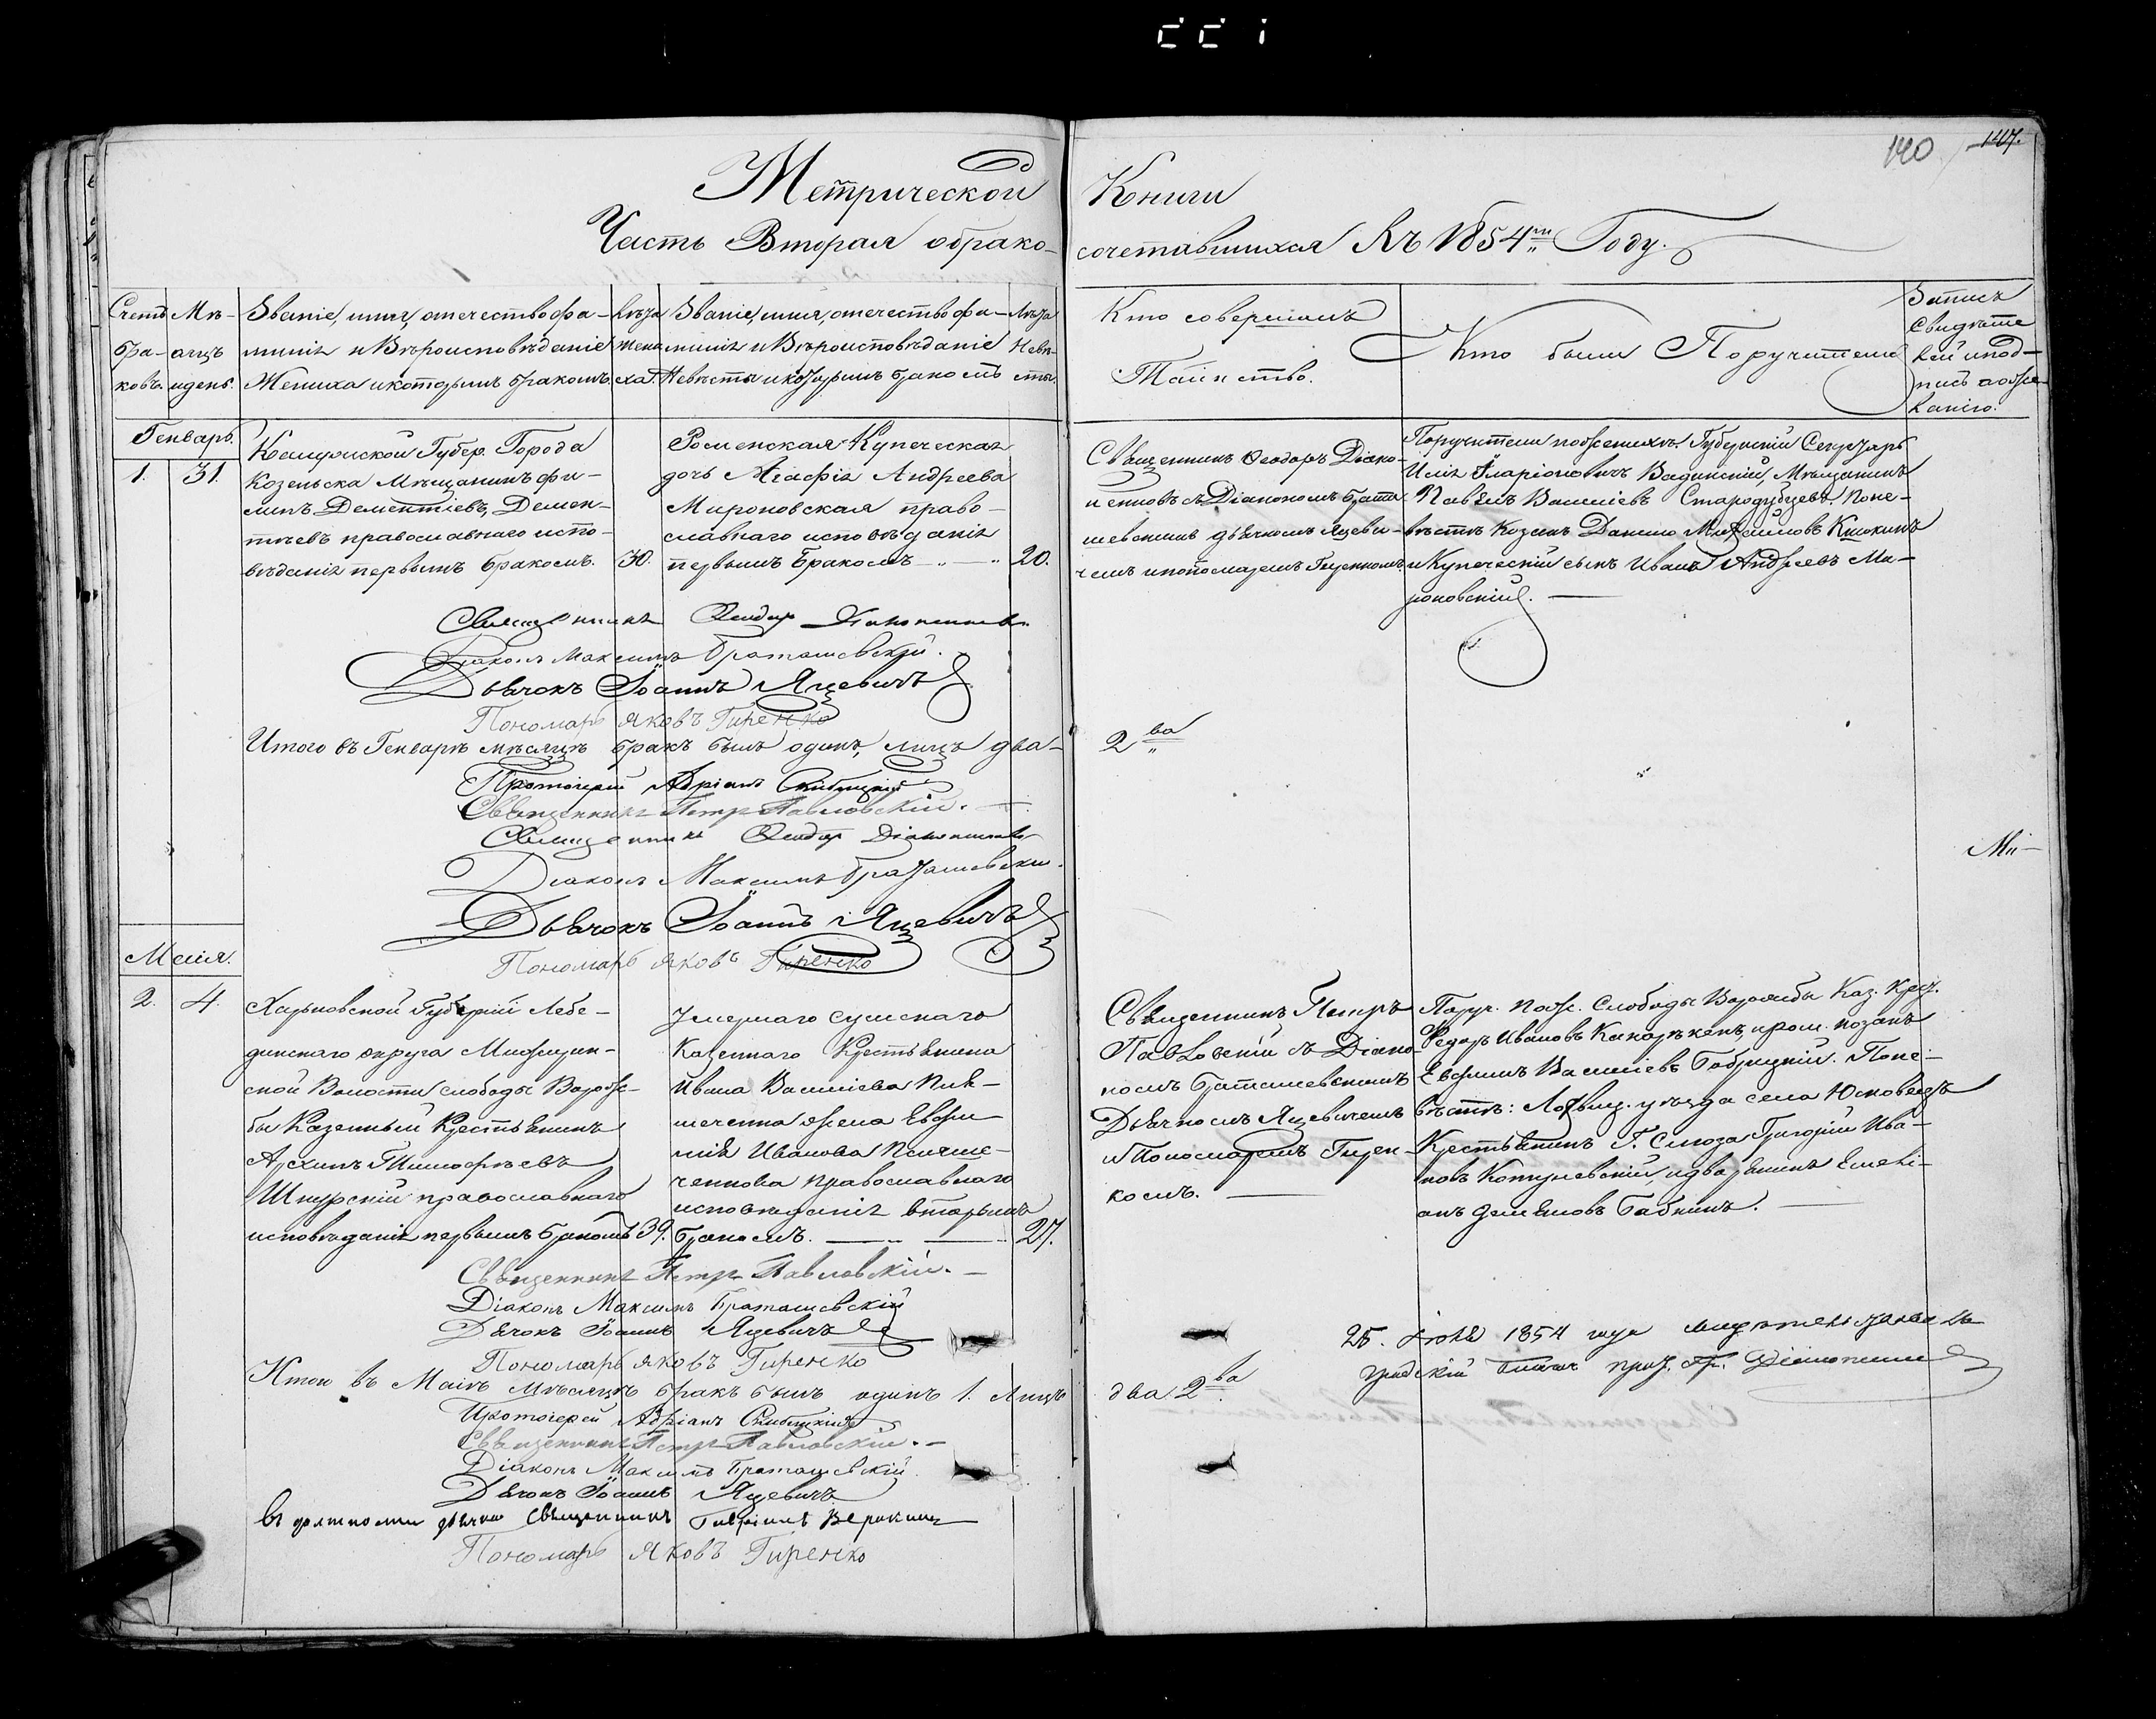 140 147.
Метрической Книги
Часть Вторая обрако- сочетавшихся Къ 1854му Году.
Счетъ бра- ковъ.
Мѣ- сяцъ идень.
Званіе, имя, отечество фа-
милія и Вѣроисповѣданіе
Жениха и которымъ бракомъ.
Лѣта жени ха.
Званіе, имя, отечество фа-
милія и Вѣроисповѣданіе
Невѣсты и которымъ бракомъ
Лѣта Невѣ- сты.
Кто совершалъ
Таинство.
Кто были Поручители
Запись
свидѣте
лей и под-
пись по же-
ланію.
Генварь.
1. 31.
Калужской Губер. Города
Козельска Мѣщанинъ Фи-
липъ Дементіевъ, Демен-
тьевъ православнаго испо-
вѣданія первымъ бракомъ. 30.
Роменская Купеческая
дочь Агафія Андреева
Мироновская право-
славнаго исповѣданія
первымъ бракомъ 20.
Священникъ Феодоръ Діако-
ненковъ съ Діакономъ Брата-
шевскимъ дьячкомъ Яцеви-
чемъ и пономаремъ Гиренкомъ.
Поручители по женихѣ: Губернскій Секретарь
Илія Иларіоновичъ Вадинскій, Мѣщанинъ
Павелъ Василіевъ Стародубцевъ. По не-
вѣстѣ Козакъ Данило Михайловъ Кишкинъ
и Купеческій сынъ Иванъ Андреевъ Ми-
роновскій.
Священникъ Феодор Діаконенковъ.
Діаконъ Максимъ Браташевскій.
Дьячокъ Іоаннъ Яцевичъ
Пономарь Яковъ Гиренко
Итого въ Генварѣ мѣсяцѣ бракъ былъ одинъ, лицъ два- 2ва
Протоіерей Адріанъ
Священникъ Петръ Павловскій.
Священникъ Феодор Діаконенковъ
Діаконъ Максимъ Браташевскій.
Ми-
Дьячокъ Іоаннъ Яцевичъ
Пономарь Яковъ Гиренко
Маія.
2. 4.
Харьковской Губерніи Лебе-
динскаго округа
ской Волости слободы Ворож-
бы Казенный Крестьянинъ
Архипъ Тимофѣевъ
Шкурскій православнаго
исповѣданія первымъ бракомъ 39.
умершаго Сумскаго
Казеннаго Крестьянина
Ивана Василіева Пше-
ченка жена Евфи-
мія Иванова Пшене-
ченкова православнаго
исповѣданія вторымъ
бракомъ. 27.
Священникъ Петръ
Павловскій съ Діако-
номъ Браташевскимъ
Дьячкомъ Яцевичемъ
и Пономаремъ Гирен-
комъ.
Поруч. по же. Слободы Ворожбы Каз. Крес.
Федоръ Ивановъ и ром. козакъ
Евфимъ Василіевъ Бобрицкій. По не-
вѣстѣ: Лохвиц. уѣзда села Юсковецъ
Крестьянинъ Григорій Ива-
новъ и дворянинъ Емелі-
анъ Демяновъ Бабкинъ.
Священникъ Петръ Павловскій.
Діаконъ Максимъ Браташевскій
Дьячокъ Іоаннъ Яцевичъ
Пономарь Яковъ Гиренко
25. 1854 года
Итого въ Маіѣ Мѣсяцѣ бракъ былъ одинъ 1. Лицъ два 2ва.
Протоіерей Адріанъ
Священникъ Петръ Павловскій.
Діаконъ Максимъ Браташевскій.
Дьячокъ Іоаннъ Яцевичъ
въ должности дьячка Священникъ
Пономарь Яковъ Гиренко